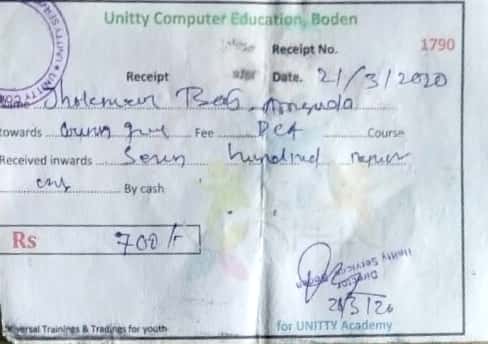 Unitty Computer Education, Boden
Receipt No. 1790
Receipt Date. 21/3/2020
towards Fee DCA Course
Received inwards Seven hundred rupees
only By cash
Rs 700/-
Director
Unitty Services
21/3/20
Universal Trainings & Tradings for youth for UNITTY Academy